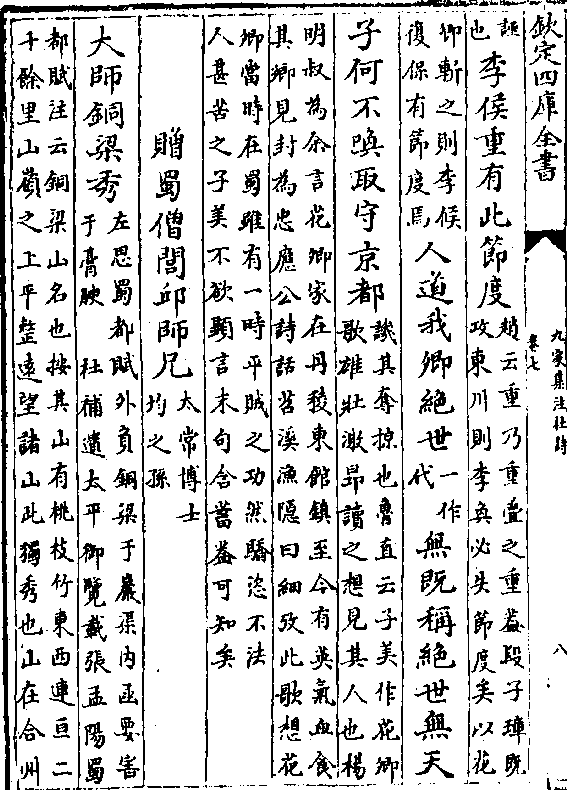 欽定四庫全書
九家集注杜詩
卷七
八
也李侯重有此節度趙云重乃重疊之重蓋段子璋既
攻東川則李奐必失節度矣以花
卿斬之則李侯
復保有節度焉人道我卿絕世一作
代無既稱絕世無天
子何不喚取守京都談其奪掠也魯直云子美作花卿
歌雄壯激昂讀之想見其人也楊
明叔為余言花卿家在丹稜東館鎮至今有英氣血食
其鄉見封為忠應公詩話苕溪漁隱曰細攷此歌想花
卿當時在蜀雖有一時平賊之功然驕恣不法
人甚苦之子美不欲顯言末句含蓄蓋可知矣
贈蜀僧閭邱師兄太常博士
均之孫
大師銅梁秀左思蜀都賦外負銅梁于巖渠內函要害
于膏腴 杜補遺太平御覽載張孟陽蜀
都賦注云銅梁山名也按其山有桃枝竹東西連亘二
十餘里山嶺之上平整遠望諸山此獨秀也山在合州